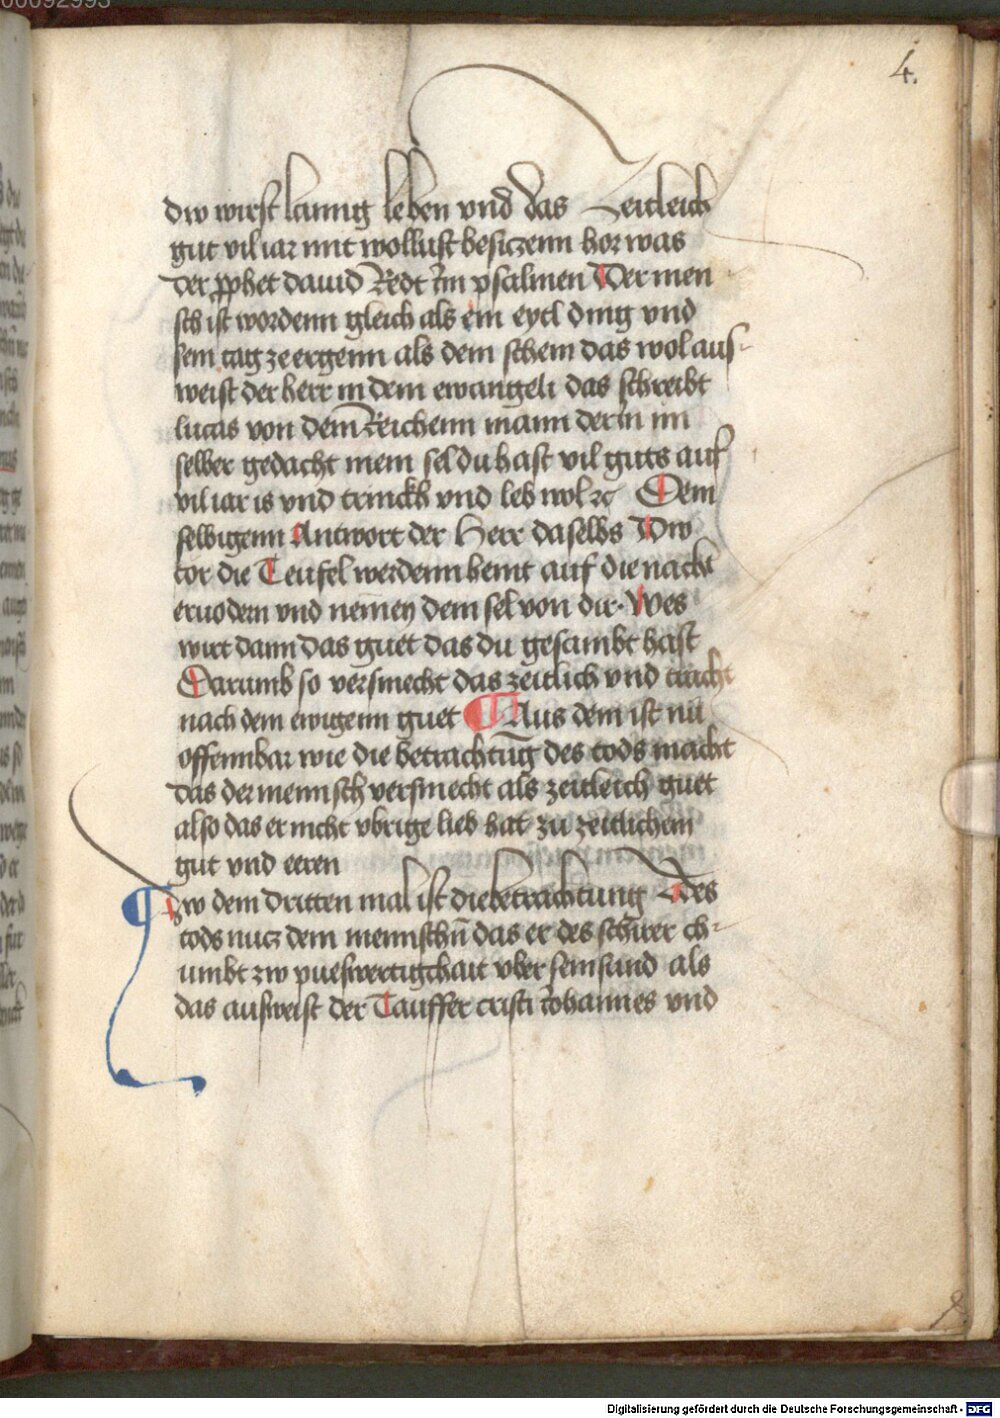 00092993
4.
dw wirst lanng leben vnd das Zeitleich
gut vil iar mit wollust besiczenn hor was
der prophet dauid Redt Im psalmen Der men
sch ist wordenn gleich als ein eytl ding vnd
sein tag ze ergenn als dem schem das wol aus-
weist der herr in dem ewangeli das schreibt
lucas von dem Reichenn mann der in im
selber gedacht mein sel du hast vil guts auf
vil iar is vnd trinckh vnd leb wol ꝛc Dem
selbigenn Antwort der Herr daselbs Dw
tor die Teufel werdenn heint auf die nacht
eruodern vnd nemen dein sel von dir. Wes
wirt dann das guet das du gesambt hast
Darumb so versmecht das zeitlich vnd tracht
nach dem ewigenn guet ¶ Aus dem ist nu
offennbar wie die betrachtūg des tods macht
das der mennsch versmecht als zeitleich guet
also das er nicht vbrige lieb hat zu zeitlichem
gut vnd eeren
¶ Zw dem dritten mal ist die betrachtung Des
tods nucz dem mennschn̄ das er des schirer ch-
umbt zw pueswertigchait vber sein sund als
das ausweist der Tauffer cristi Johannes vnd
Digitalisierung gefördert durch die Deutsche Forschungsgemeinschaft - DFG